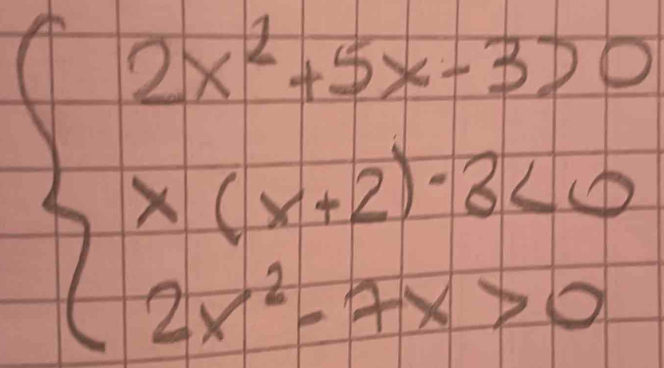 2x² + 5x - 3 > 0
x (x + 2) - 3 < 0
2x² - 7x > 0